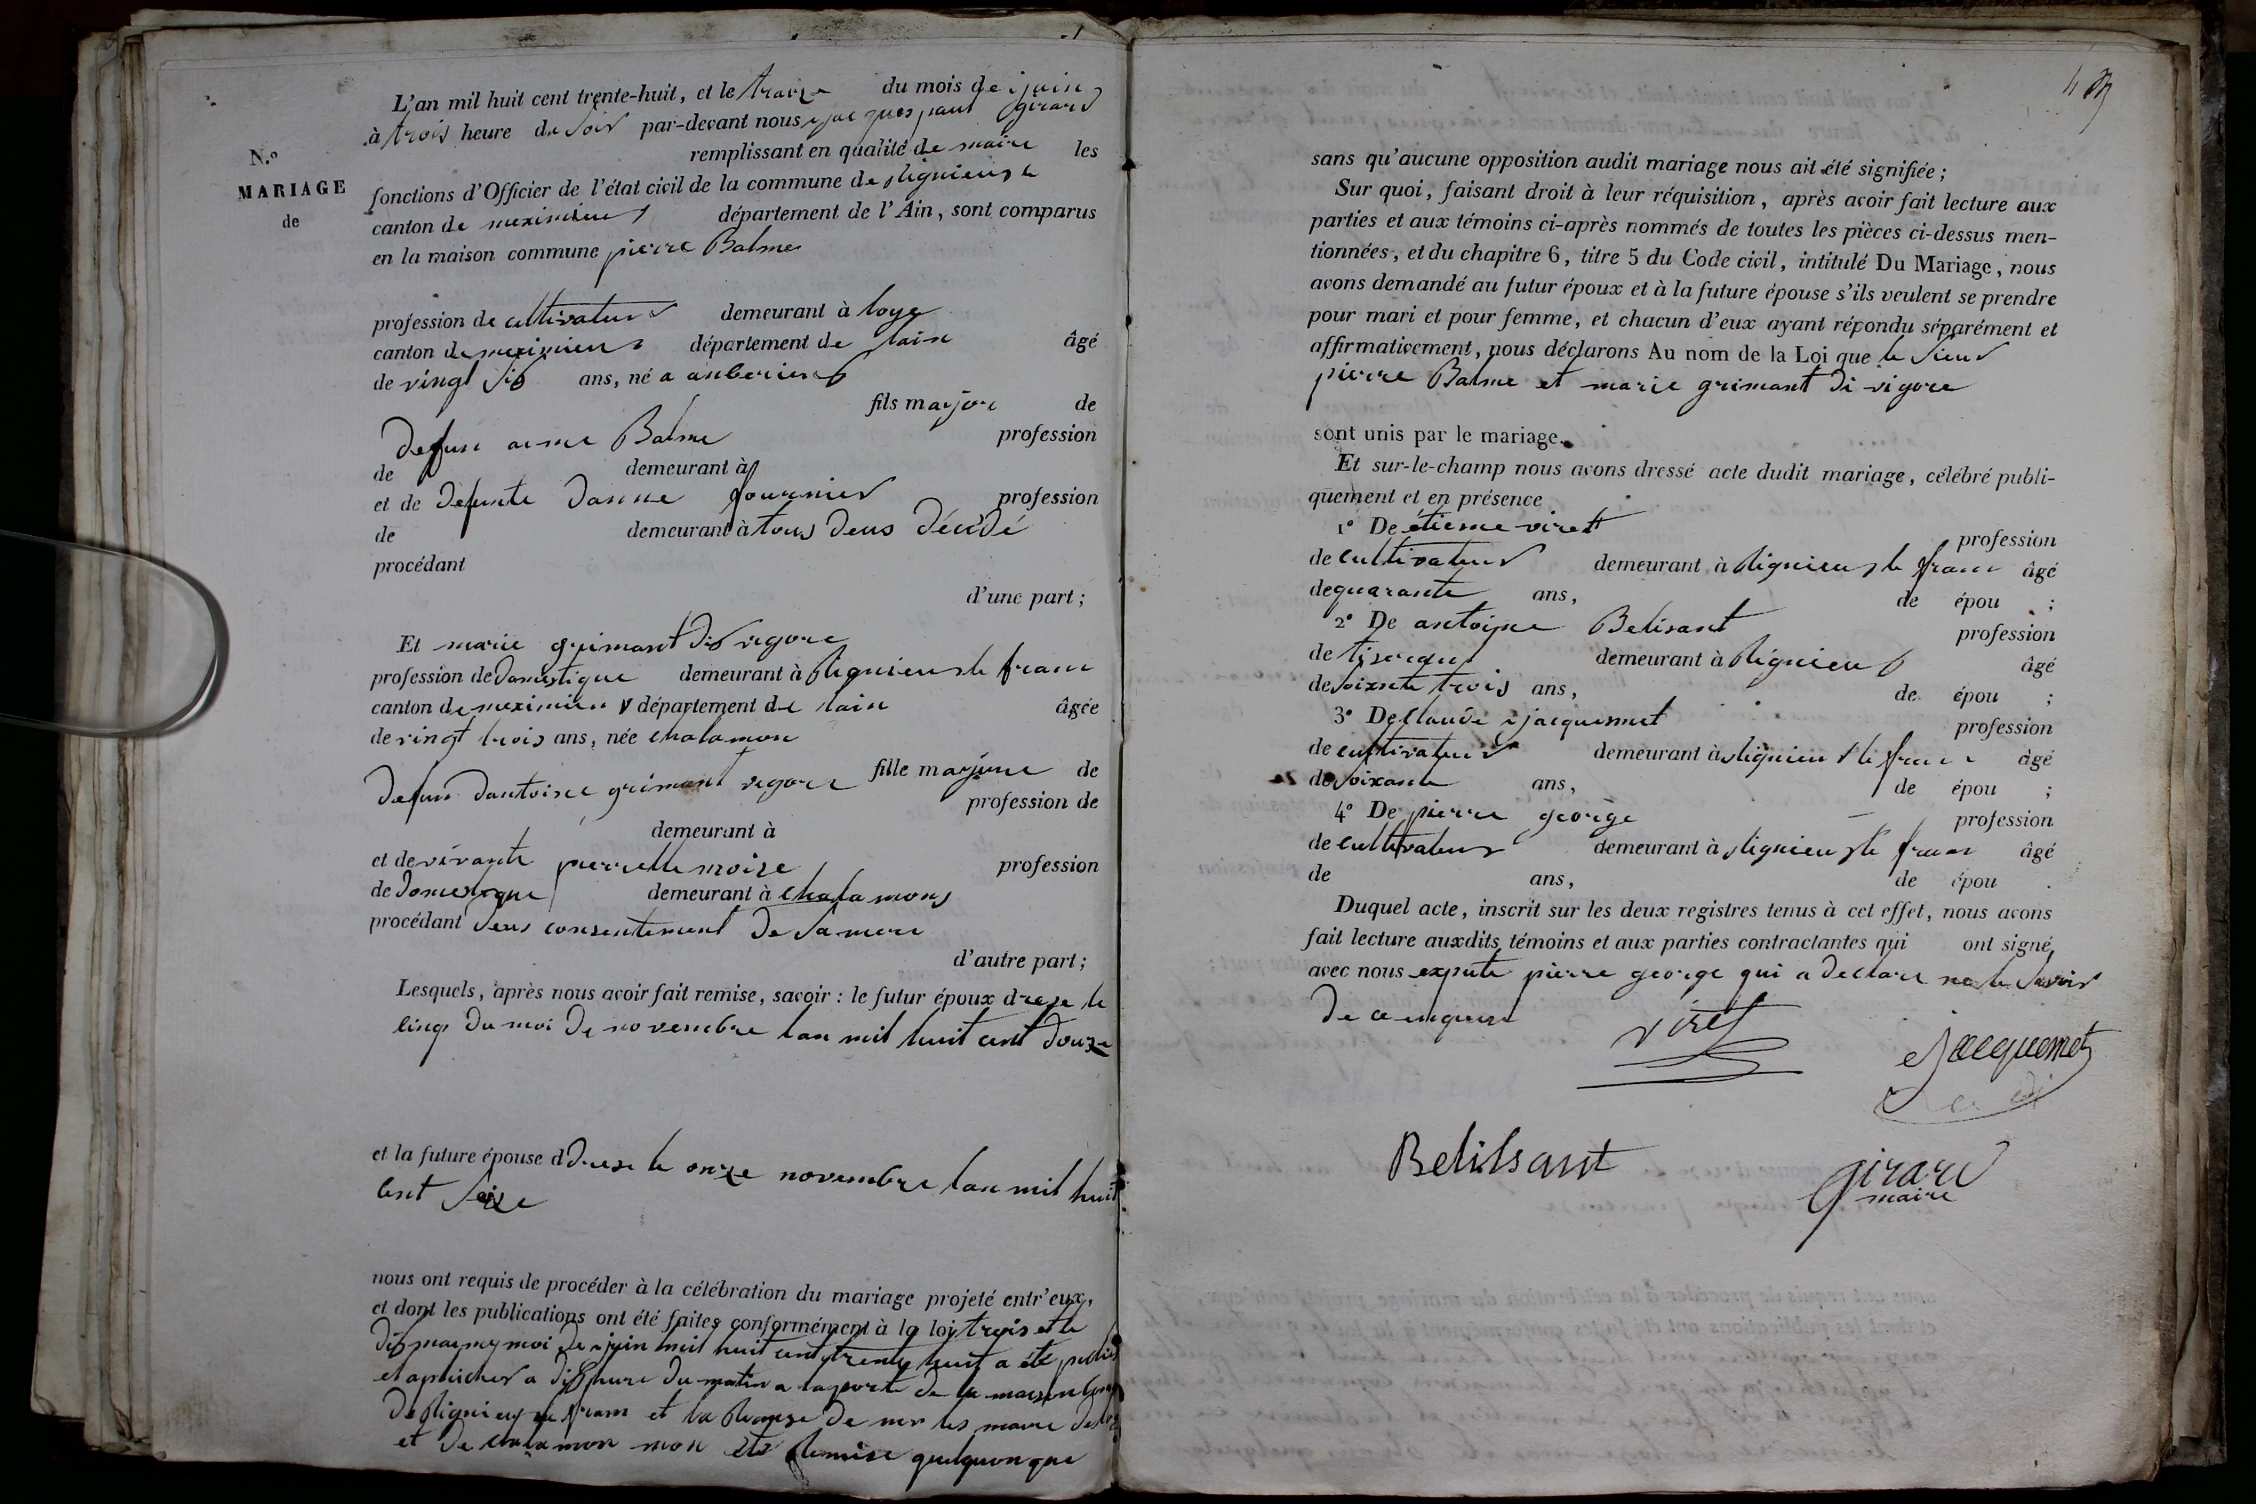 L'an mil huit cent trente-huit, et le traize du mois de juin
à trois heure du soir par-devant nous jacques paul girard
remplissant en qualité de maire les
N.o
MARIAGE
de
fonctions d'Officier de l'état civil de la commune de rignieux le
canton de meximieux département de l'Ain, sont comparus
en la maison commune pierre Balme
profession de cultivateur demeurant à loye
canton de meximieux département de lain âgé
de vingt six ans, né a amberieux
fils marjore de
defun aime Balme profession
de demeurant à
et de defunte danne fournier profession
de demeurant à tous deus décédé
procédant
d'une part;
Et marie grimant dit vigore
profession de domestique demeurant à Rignieux le franc
canton de meximieux département de lain âgée
de vingt trois ans, née chalamon
fille marjeure de
defun dantoine grimant vigore profession de
demeurant à
et de vivante pierrette moize profession
de domestique demeurant à chalamons
procédant sous consentement de sa mere
d'autre part;
Lesquels, après nous avoir fait remise, savoir : le futur époux le
cinq du moi de novembre lan mil huit cent douze
et la future épouse le onze novembre lan mil huit
cent seize
nous ont requis de procéder à la célébration du mariage projeté entr'eux,
et dont les publications ont été faites conformément à la loi trois et le
dix moi de juin mil huit cent trente huit a été publié
et aphicher a dix hure du matin a la porte de la maison
de Rignieux le franc et la de les maire de
et de chalamon non été Remise quelquonque
sans qu'aucune opposition audit mariage nous ait été signifiée;
Sur quoi, faisant droit à leur réquisition, après avoir fait lecture aux
parties et aux témoins ci-après nommés de toutes les pièces ci-dessus men-
tionnées, et du chapitre 6, titre 5 du Code civil, intitulé Du Mariage, nous
avons demandé au futur époux et à la future épouse s'ils veulent se prendre
pour mari et pour femme, et chacun d'eux ayant répondu séparément et
affirmativement, nous déclarons Au nom de la Loi que le sieur
pierre Balme et marie grimant di vigore
sont unis par le mariage.
Et sur-le-champ nous avons dressé acte dudit mariage, célébré publi-
quement et en présence
1° De étienne viret profession
de cultivateur demeurant à Rignieux le franc âgé
de quarante ans, de épou ;
2° De antoine Belisant profession
de tiserand demeurant à Rignieux âgé
de soixante trois ans, de épou ;
3° De claude jacquemet profession
de cultivateur demeurant à rignieux le franc âgé
de soixante ans, de épou ;
4° De pierre george profession
de cultivateur demeurant à rignieux le franc âgé
de ans, de épou .
Duquel acte, inscrit sur les deux registres tenus à cet effet, nous avons
fait lecture auxdits témoins et aux parties contractantes qui ont signé
avec nous expeté pierre george qui a declare ne le savoir
de ce enquis
viret
jacquemet
Belissant
girard
maire